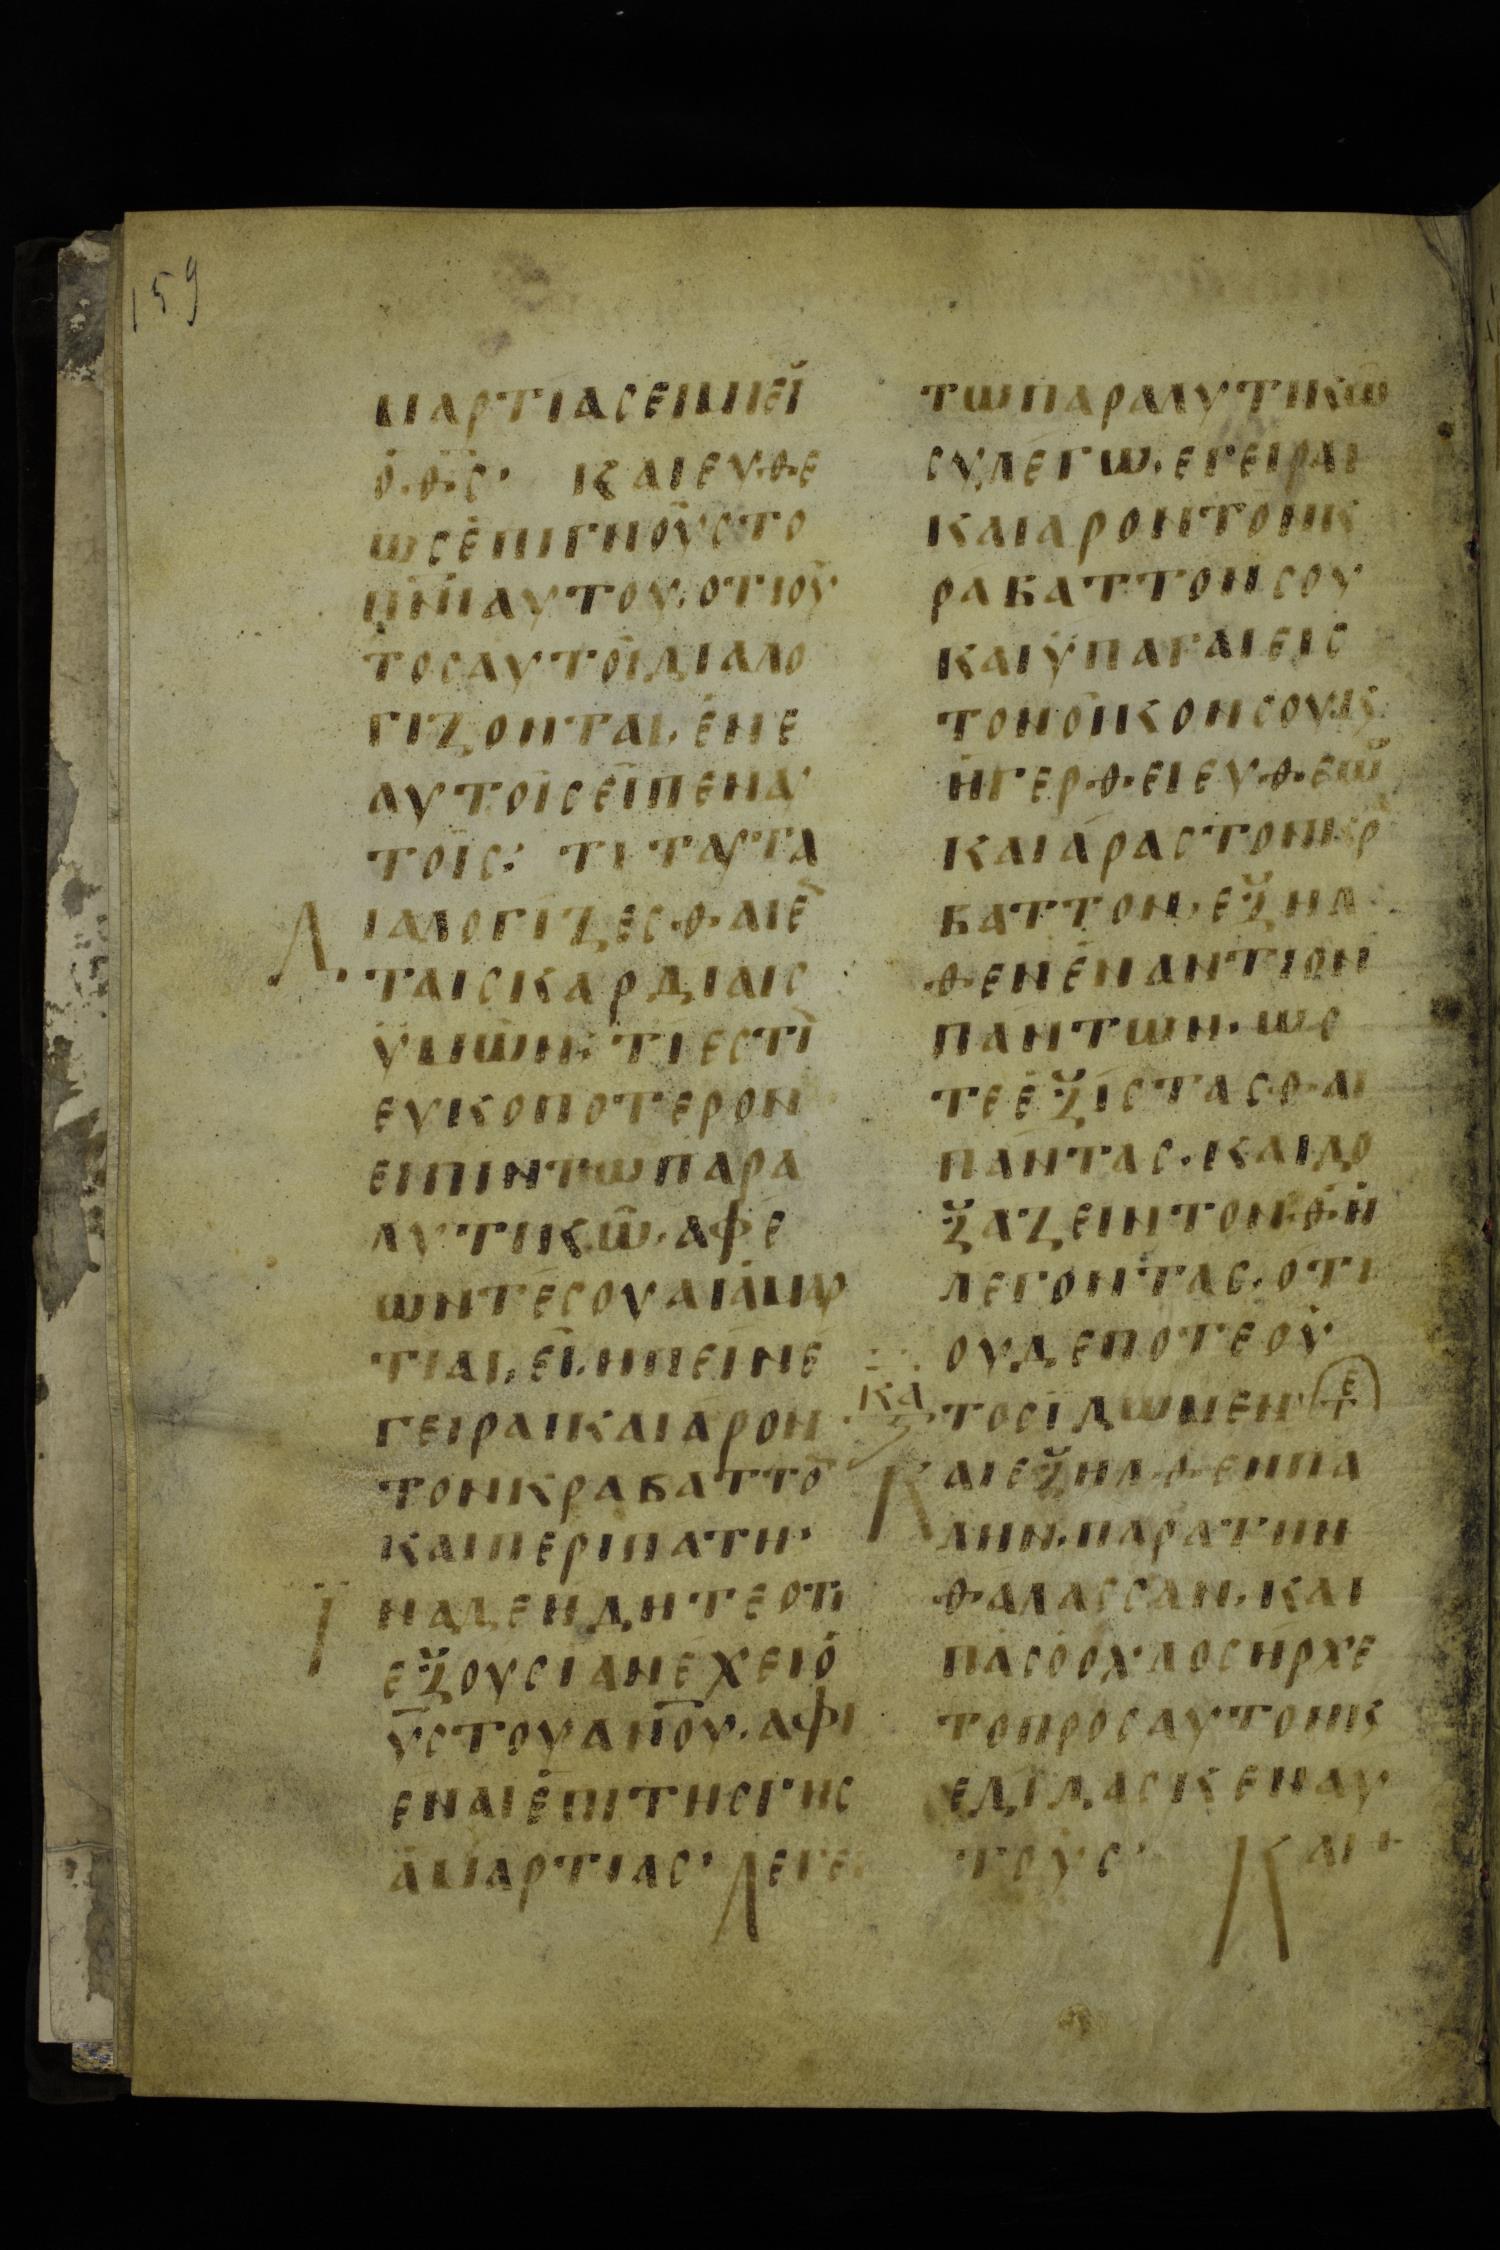 159
ΜΑΡΤΙΑϹΕΙΜΙΕΪ
Ὁ·Θ̅Ϲ̅· ΚΑΙΕΥΘΕ
ωϹἘΠΙΓΝΟῪϹΤΟ
Π̅Ν̅ΙΑΥΤΟΥ·ΟΤΙΟΥ̓
ΤΟϹΑΥΤΟῚΔΙΑΛΟ
ΓΙΖΟΝΤΑΙ·ἘΝΕ
ΑΥΤΟΙϹΕΙΠΕΝΑΥ
ΤΟΙϹ: ΤΙΤΑΥΤΑ
Δ
ΙΑΛΟΓΙΖΕϹΘΑΙΕ̅
ΤΑΙϹΚΑΡΔΙΑΙϹ
ΫΜωΝ· ΤΙΕϹΤΙ̅
ΕΥΚΟΠΟΤΕΡΟΝ
ΕΙΠΙΝΤωΠΑΡΑ
ΛΥΤΙΚω·ΑΦΕ
ωΝΤΕϹΟΥΑΙἉΜΑΡ
ΤΙΑΙ·ΕΙ·ΗΠΕΙΝΕ
ΓΕΙΡΑΙΚΑΙΑΡΟΝ
ΤΟΝΚΡΑΒΑΤΤΟ̅
ΚΑΙΠΕΡΙΠΑΤΗ·
Ϊ
ΝΑΔΕΗΔΗΤΕΟΤΙ
ΕΞΟΥϹΙΑΝΕΧΕΙὉ
Υ̅Ϲ̅ΤΟΥΑΝ̅Ο̅Υ̅·ΑΦΙ
ΕΝΑΙἘΠΙΤΗϹΓΗϹ
ἉΜΑΡΤΙΑϹ· ΛΕΓΕΙ
ΤωΠΑΡΑΛΥΤΙΚω
ϹΥΛΕΓω·ΕΓΕΙΡΑΙ
ΚΑΙΑΡΟΝΤΟΝΚ
ΡΑΒΑΤΤΟΝϹΟΥ
ΚΑΙΫΠΑΓΑΙΕΙϹ
ΤΟΝΟΙΚΟΝϹΟΥ·Κ
ἨΓΕΡΘΕΙΕΥΘΕω
ΚΑΙΑΡΑϹΤΟΝΚΡ
ΒΑΤΤΟΝ·ΕΞΗΛ
ΘΕΝἘΝΑΝΤΙΟΝ
ΠΑΝΤωΝ·ωϹ
ΤΕἘΞΙϹΤΑϹΘΑΙ
ΠΑΝΤΑϹ·ΚΑΙΔΟ
ΞΑΖΕΙΝΤΟΝΘ̅Ν̅
ΛΕΓΟΝΤΑϹ·ΟΤΙ
ΟΥΔΕΠΟΤΕΟΥ̓
ΤΟϹΙΔωΜΕΝ
ΚΑ
ΚΑΙΕΞΗΛΘΕΝΠΑ
ΛΗΝ·ΠΑΡΑΤΗΝ
ΘΑΛΑϹϹΑΝ·ΚΑΙ
ΠΑϹὉΟΧΛΟϹΗΡΧΕ
ΤΟΠΡΟϹΑΥΤΟΝΚ
ΕΔΙΔΑϹΚΕΝΑΥ
ΤΟΥϹ· ΚΑΙ